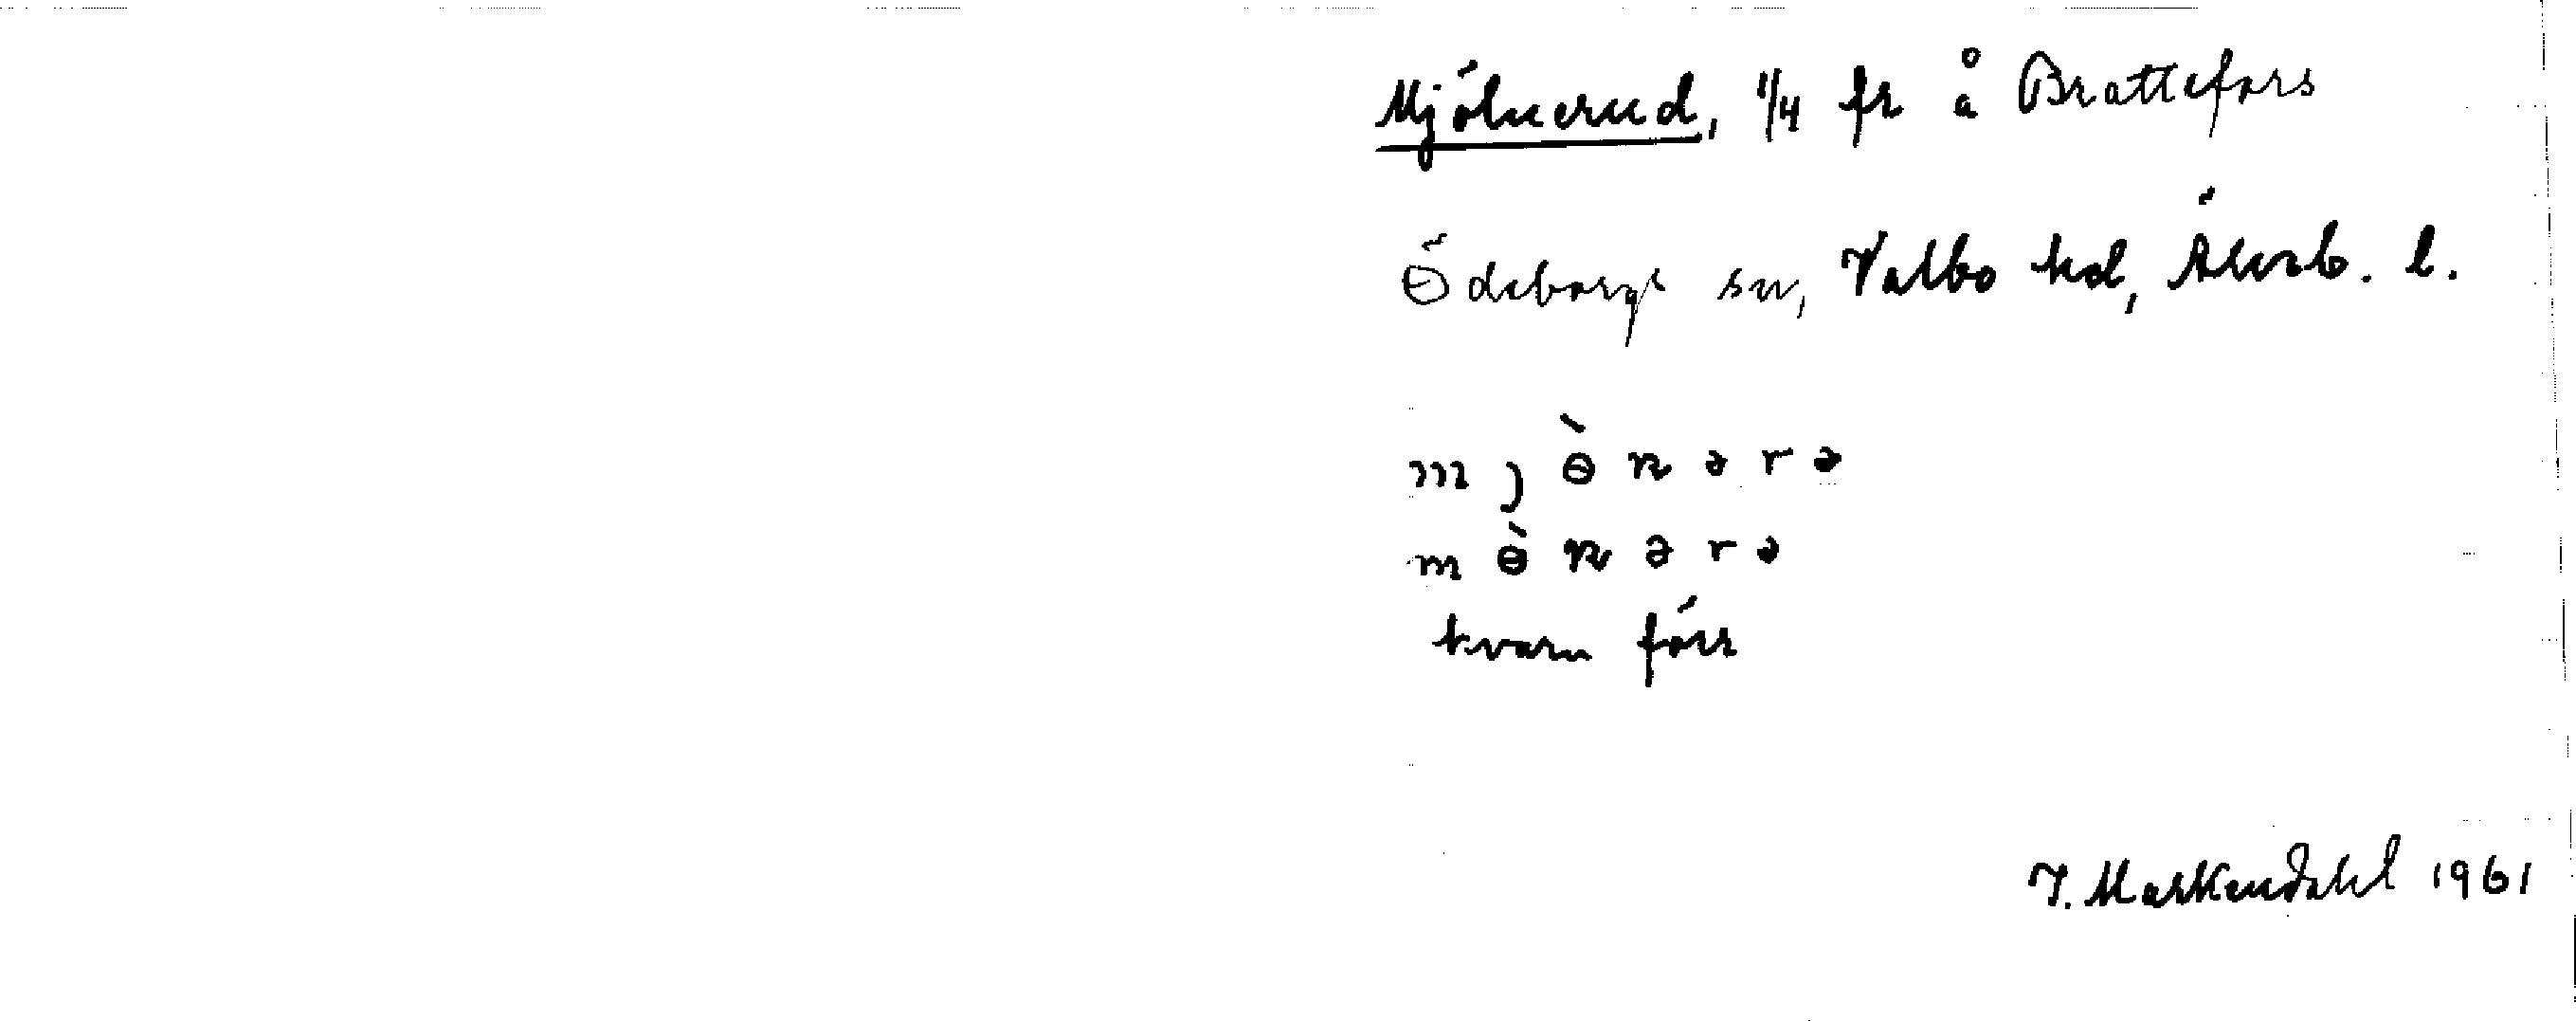 Mjölnerud, 1/4 fr å Brattefors
Ödeborgs sn, Valbo hd, Älvsb. l.
m j ɵ̀ n ə r ə
m ɵ̀ n ə r ə
kvarn förr
T. Markendahl 1961